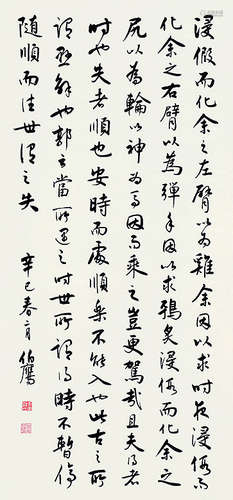 浸假而化余之左臂以為雞余因以求时夜浸假而
化余之右臂以為彈予因以求鴞炙浸假而化余之
尻以為輪以神為馬因而乘之豈更駕哉且夫得者
時也失者順也安時而處順樂不能入也此古之所
謂懸解也郭云當所遇之時世所謂得時不暫停
随順而往世謂之失
辛巳春二月 伯鷹